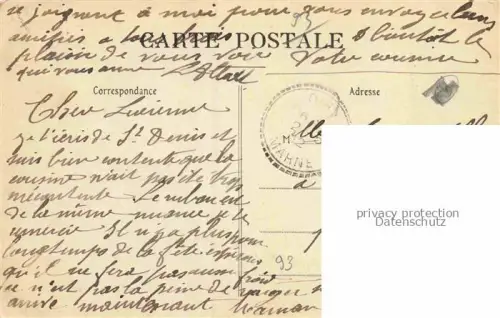 se joignent à moi pour vous envoyer leurs
amitiés a tous. A bientôt le
CARTE POSTALE
plaisir de vous voir Votre cousine
qui vous aime
Correspondance
Adresse
Cher Lucienne
je t'écris de St Denis et
suis bien contente que la
cousine n'ait pas été trop
mécontente. Le ruban est
de la même nuance je te
remercie Il n'y a plus pour
longtemps de la fête espérons
qu'il ne fera pas aussi froid
ce n'est pas la peine de
arrive maintenant Maman
MARNE
Mlle
a
93
privacy protection
Datenschutz